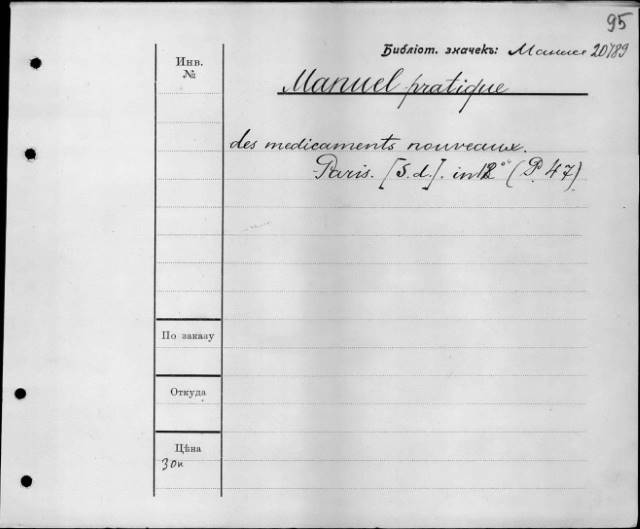 95
Библіот. значекъ: Мание 20/89
Инв.
№
Manuel pratique
des medicaments nouveaux.
Paris. [S.d.]. in 12° (P. 47)
По заказу
Откуда
Цѣна
30к